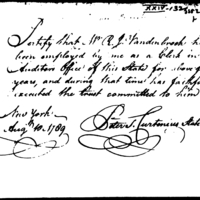 XXIV-132
Certify that Mr. R. J. Vandenbrook has
been employed by me as a Clerk in
Auditors Office of this State for above
years, and during that time has faithf
executed the trust committed to him
New York
Augt 10. 1789
Peter T. Curtenius State